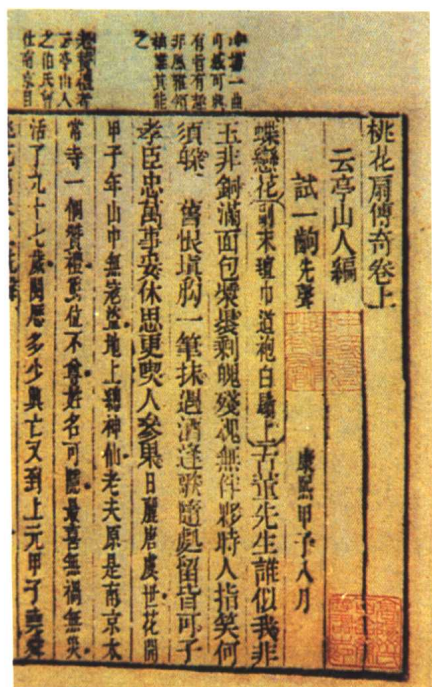 冲場一曲
可感可興
有旨有趣
非風雅領
袖誰其能
之
老贊禮者
云亭山人
之伯氏曾
仕南京目
桃花扇傳奇卷上
云亭山人編
試一齣 先聲 康熙甲子八月
蝶戀花 副末氊巾道袍白鬚上 古董先生誰似我非
玉非銅滿面包漿裹剩魄殘魂無伴夥時人指笑何
須躲 舊恨塡胸一筆抹遇酒逢歌隨處留皆可子
孝臣忠萬事妥休思更喫人參果 日麗唐虞世花開
甲子年山中無寇盜地上總神仙老夫原是南京太
常寺一個贊禮爵位不尊姓名可隱最喜無禍無災
活了九十七歲閱歷多少興亡又到上元甲子堯舜